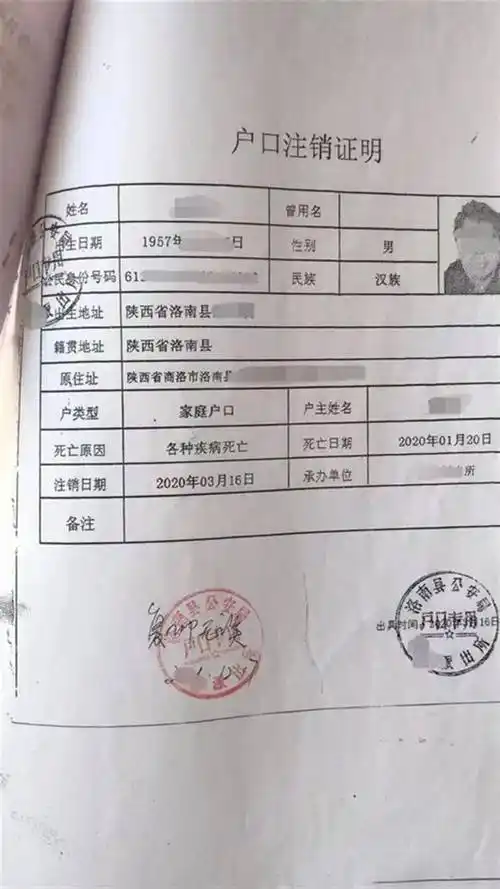 户口注销证明
姓名 曾用名
出生日期 1957年 日 性别 男
公民身份号码 61 民族 汉族
出生地址 陕西省洛南县
籍贯地址 陕西省洛南县
原住址 陕西省商洛市洛南县
户类型 家庭户口 户主姓名
死亡原因 各种疾病死亡 死亡日期 2020年01月20日
注销日期 2020年03月16日 承办单位 所
备注
县公安局
洛南县公安局
户口专用
出具时间：2020年3月16日
出所